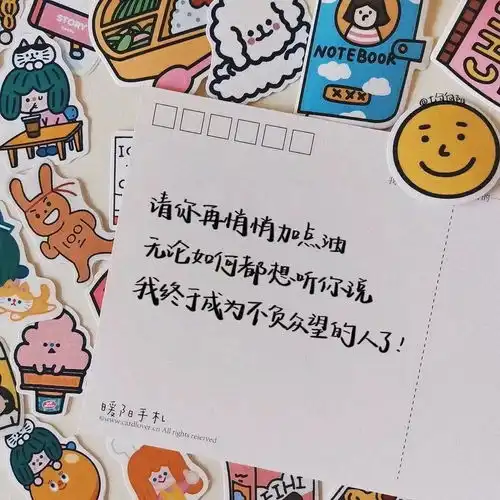 STORY
NOTEBOOK
请你再悄悄加点油
无论如何都想听你说
我终于成为不负众望的人了!
暖阳手札
All rights reserved